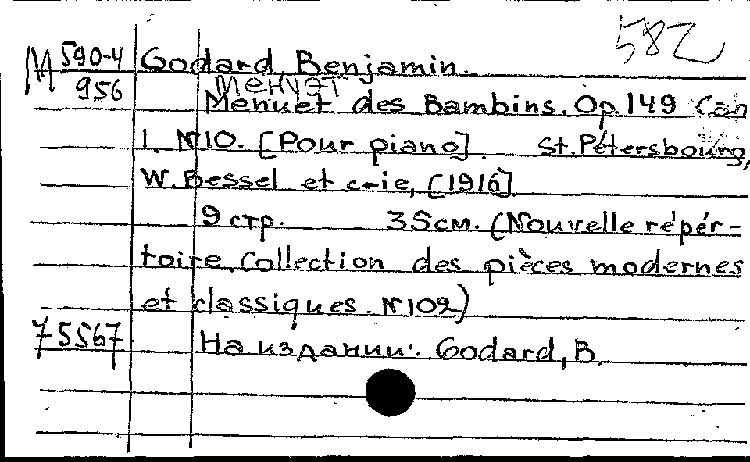 582
М 590-4
956
Godard Benjamin.
Менуэт
Menuet des Bambins. Op.149 Cah
1. N10. [Pour piano]. St.Pétersbourg,
W.Bessel et c-ie, [1916]
9 стр. 35см. (Nouvelle répér-
toire. Collection des pièces modernes
et classiques. N102)
75567
На издании: Godard, B.